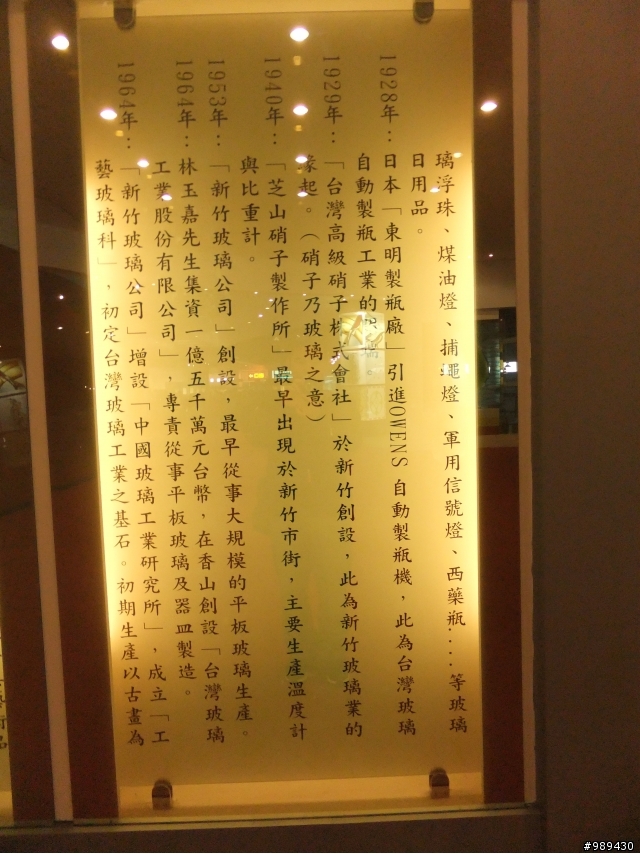 璃浮珠、煤油燈、捕蠅燈、軍用信號燈、西藥瓶....等玻璃
日用品。
1928年：日本「東明製瓶廠」引進OWENS 自動製瓶機，此為台灣玻璃
自動製瓶工業的
1929年：「台灣高級硝子株式會社」於新竹創設，此為新竹玻璃業的
緣起。（硝子乃玻璃之意）
1940年：「芝山硝子製作所」最早出現於新竹市街，主要生產溫度計
與比重計。
1953年：「新竹玻璃公司」創設，最早從事大規模的平板玻璃生產。
1964年：林玉嘉先生集資一億五千萬元台幣，在香山創設「台灣玻璃
工業股份有限公司」，專責從事平板玻璃及器皿製造。
1964年：「新竹玻璃公司」增設「中國玻璃工業研究所」，成立「工
藝玻璃科」，初定台灣玻璃工業之基石。初期生產以古畫為
#989430